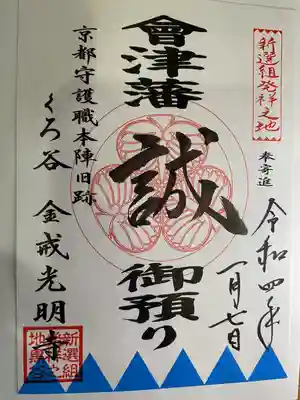 新選組発祥之地
奉寄進
令和四年
一月七日
會津藩
誠
御預り
京都守護職本陣旧跡
くろ谷 金戒光明寺